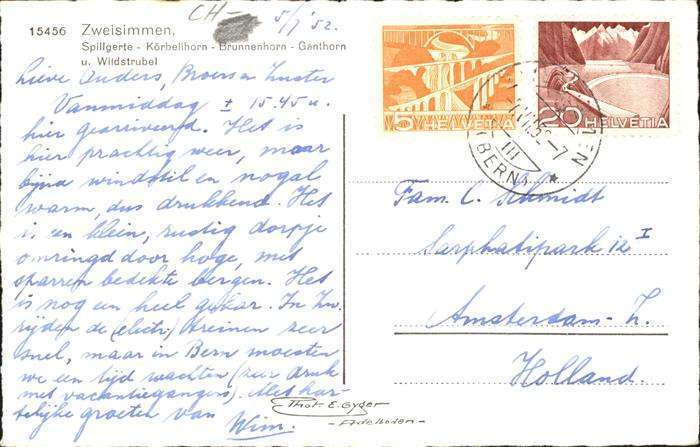 15456 Zweisimmen,
Spillgerte - Körbelihorn - Brunnenhorn - Gänthorn
u. Wildstrubel
CH-
5/7 '52.
Lieve Ouders, Broer en Zuster
Vanmiddag ± 15.45 u.
hier gearriveerd. Het is
hier prachtig weer, maar
bijna windstil en nogal
warm, dus drukkend. Het
is een klein, rustig dorpje
omringd door hoge, met
sparren bedekte bergen. Het
is nog een heel gebar. In Zw.
rijden de (electr.) treinen zeer
snel, maar in Bern moesten
we een tijd wachten (zeer druk
met vacantiegangers). Met har-
telijke groeten van Wim.
5 HELVETIA
20 HELVETIA
(BERN)
III
Fam. C. Schmidt
Sarphatipark 12 I
Amsterdam-Z.
Holland.
Phot. E. Gyger
- Adelboden -